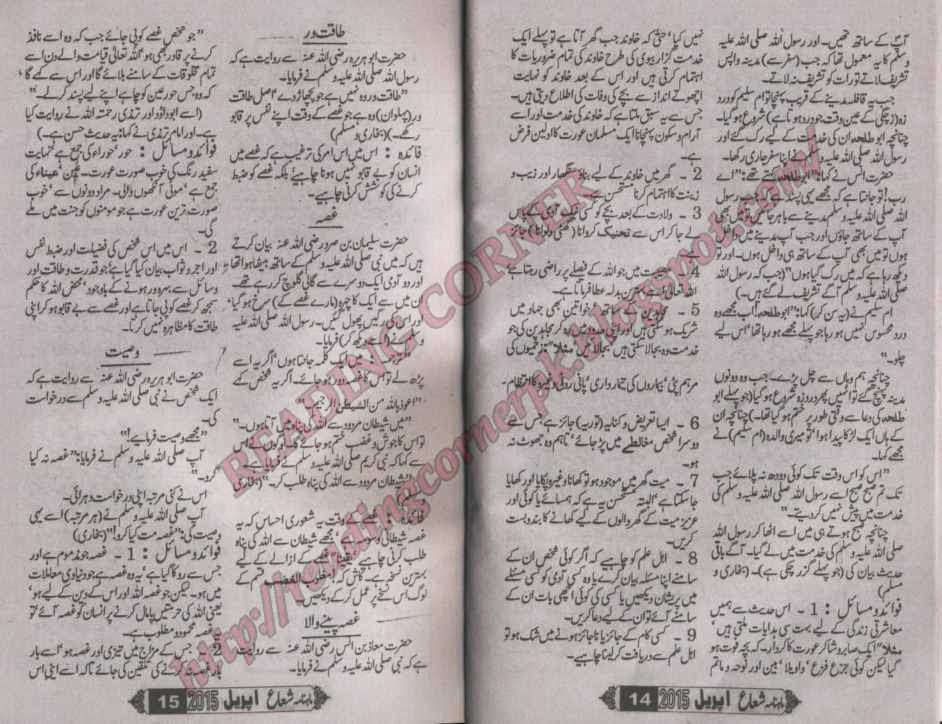 آپ کے ساتھ تھیں۔ اور رسول اللہ صلی اللہ علیہ
وسلم کا یہ معمول تھا کہ جب (سفر سے) مدینہ واپس
تشریف لاتے تو رات کو تشریف نہ لاتے۔
جب یہ قافلہ مدینے کے قریب پہنچا تو ام سلیم کو درد
زہ (زچگی کے عین وقت جو درد ہوتا ہے) شروع ہو گیا۔
چنانچہ ابو طلحہ ان کی خدمت کے لیے رک گئے اور
رسول اللہ صلی اللہ علیہ وسلم نے اپنا سفر جاری رکھا۔
حضرت انس نے کہا، ابو طلحہ کہتے تھے "اے
رب! تو جانتا ہے کہ مجھے یہی پسند ہے کہ جب رسول
اللہ صلی اللہ علیہ وسلم مدینے سے باہر جائیں تو میں بھی
آپ کے ساتھ جاؤں اور جب آپ مدینے میں داخل
ہوں تو میں بھی آپ کے ساتھ ہی داخل ہوں۔ تو
دیکھ رہا ہے کہ میں رک گیا ہوں" (جب کہ رسول اللہ
صلی اللہ علیہ وسلم آگے تشریف لے گئے ہیں)
ام سلیم نے (یہ سن کر) کہا: "ابو طلحہ! اب مجھے وہ
درد محسوس نہیں ہو رہا جو پہلے مجھے ہو رہا تھا' اس لیے
چلو۔"
چنانچہ ہم وہاں سے چل پڑے۔ جب وہ دونوں
مدینہ پہنچ گئے تو انہیں پھر درد زہ شروع ہو گیا (جو پہلے ابو
طلحہ کی دعا سے وقتی طور پر ختم ہو گیا تھا۔) چنانچہ ان
کے ہاں ایک لڑکا پیدا ہوا' تو میری والدہ (ام سلیم) نے
مجھے کہا۔
"اس کو اس وقت تک کوئی دودھ نہ پلائے جب
تک تم صبح صبح اسے رسول اللہ صلی اللہ علیہ وسلم کی
خدمت میں پیش نہ کر دیتے۔"
چنانچہ صبح ہوتے ہی میں اسے اٹھا کر رسول اللہ
صلی اللہ علیہ وسلم کی خدمت میں لے گیا۔ آگے باقی
حدیث بیان کی (جو پہلے گزر چکی ہے)۔ (بخاری و
مسلم)
فوائد و مسائل : 1 - اس حدیث سے ہمیں
معاشرتی زندگی کے لیے بہت سی ہدایات ملتی ہیں'
مثلاً" ایک صابر و شاکر عورت کا کردار۔ کہ بچہ فوت ہو
گیا لیکن کوئی جزع فزع' واویلا' بین اور نوحہ و ماتم
نہیں کیا' حتیٰ کہ خاوند جب گھر آتا ہے تو پہلے ایک
خدمت گزار بیوی کی طرح خاوند کی تمام ضروریات کا
اہتمام کرتی ہیں اور اس کے بعد خاوند کو نہایت
اچھوتے انداز سے بچے کی وفات کی اطلاع دیتی ہیں۔
جس سے یہ سبق ملتا ہے کہ خاوند کی خدمت اور اسے
آرام و سکون پہنچانا ایک مسلمان عورت کا اولین فرض
ہے۔
2 - گھر میں خاوند کے لیے بناؤ سنگھار اور زیب و
زینت کا اہتمام کرنا مستحسن ہے۔
3 - ولادت کے بعد بچے کو کسی نیک آدمی کے پاس
لے جا کر اس سے تحنیک کروانا (گھٹی دلوانا) جائز
ہے۔
4 - مصیبت میں جو اللہ کے فیصلے پر راضی رہتا ہے
اللہ تعالیٰ اسے بہترین بدلہ عطا فرماتا ہے۔
5 - مجاہدین کے ساتھ خواتین بھی جہاد میں
شریک ہو سکتی ہیں اور اپنی حدود میں رہ کر مجاہدین کی جو
خدمت وہ بجا لا سکتی ہیں بجا لائیں مثلاً" زخمیوں کی
مرہم پٹی' بیماروں کی تیمارداری' پانی روٹی وغیرہ کا انتظام۔
6 - ایسا تعریض و کنایہ (توریہ) جائز ہے جس سے
دوسرا شخص مغالطے میں پڑ جائے' تاہم وہ جھوٹ نہ
ہو۔
7 - میت گھر میں موجود ہو تو کھانا وغیرہ پکایا اور کھایا
جا سکتا ہے' البتہ مستحسن یہ ہے کہ ہمسائے یا کوئی اور
عزیز میت کے گھر والوں کے لیے کھانے کا بندوبست
کریں۔
8 - اہل علم کو چاہیے کہ اگر کوئی شخص ان کے
سامنے اپنا مسئلہ بیان کرے یا وہ کسی آدمی کو کسی مسئلے
میں پریشان دیکھیں یا کسی کی کوئی اچھی بات ان کے
سامنے آئے تو ان کے لیے دعا کریں۔
9 - کسی کام کے جائز یا ناجائز ہونے میں شک ہو تو
اہل علم سے دریافت کر لینا چاہیے۔
ماہنامہ شعاع اپریل 2015 14
طاقت ور
حضرت ابو ہریرہ رضی اللہ عنہ سے روایت ہے کہ
رسول اللہ صلی اللہ علیہ وسلم نے فرمایا۔
"طاقت ور وہ نہیں ہے جو پچھاڑ دے' اصل طاقت
ور (پہلوان) وہ ہے جو غصے کے وقت اپنے نفس پر قابو
رکھے۔" (بخاری و مسلم)
فائدہ : اس میں اس امر کی ترغیب ہے کہ غصے میں
انسان کو بے قابو نہیں ہونا چاہیے بلکہ غصے کو ضبط
کرنے کی کوشش کرنی چاہیے۔
غصہ
حضرت سلیمان بن صرد رضی اللہ عنہ بیان کرتے
ہیں کہ میں نبی صلی اللہ علیہ وسلم کے ساتھ بیٹھا ہوا تھا
اور دو آدمی ایک دوسرے سے گالی گلوچ کر رہے تھے۔
ان میں سے ایک کا چہرہ (مارے غصے کے) سرخ ہو گیا'
اور اس کی رگیں پھول گئیں۔ رسول اللہ صلی اللہ علیہ
وسلم نے (یہ دیکھ کر) فرمایا۔
ایک کلمہ جانتا ہوں' اگر یہ اسے
پڑھ لے تو اس کا غصہ دور ہو جائے۔ اگر یہ شخص کہے
"اعوذ باللہ من الشیطٰن الرجیم۔"
"میں شیطان مردود سے اللہ کی پناہ میں آتا ہوں۔"
تو اس کا جوش و غضب ختم ہو جائے گا۔ لوگوں نے اس
سے کہا کہ نبی کریم صلی اللہ علیہ وسلم نے فرمایا ہے۔
شیطان مردود سے اللہ کی پناہ طلب کر۔" (بخاری
و مسلم)
فائدہ : غصے کے وقت یہ شعوری احساس کہ یہ
غصہ شیطانی وسوسہ ہے' مجھے شیطان سے اللہ کی پناہ
طلب کرنی چاہیے' یقیناً غصے کے ازالے کے لیے
بہترین نسخہ ہے۔ کاش کہ مغلوب الغضب قسم کے
لوگ اس نسخے پر عمل کر کے دیکھیں۔
غصہ پینے والا
حضرت معاذ بن انس رضی اللہ عنہ سے روایت
ہے کہ نبی صلی اللہ علیہ وسلم نے فرمایا۔
"جو شخص غصے کو پی جائے جب کہ وہ اسے نافذ
کرنے پر قادر بھی ہو' اللہ تعالیٰ قیامت والے دن اسے
تمام مخلوقات کے سامنے بلائے گا اور اس سے کہے گا
کہ وہ جس حور عین کو چاہے اپنے لیے پسند کر لے۔"
اسے ابو داؤد اور ترمذی رحمتہ اللہ نے روایت کیا
ہے۔ اور امام ترمذی نے کہا: یہ حدیث حسن ہے۔)
فوائد و مسائل : حور' حوراء کی جمع ہے' نہایت
سفید رنگ کی خوب صورت عورت۔ عین' عیناء کی
جمع ہے' موٹی آنکھوں والی۔ مراد دونوں سے' خوب
صورت ترین عورت ہے جو مومنوں کو جنت میں ملے
گی۔
2 - اس میں اس شخص کی فضیلت اور ضبط نفس
اور اجر و ثواب بیان کیا گیا ہے' جو قدرت و طاقت اور
وسائل سے بہرہ ور ہونے کے باوجود' محض اللہ کا حکم
سمجھ کر غصے کو پی جاتا ہے اور غصے سے بے قابو ہو کر اپنی
طاقت کا مظاہرہ نہیں کرتا۔
وصیت
حضرت ابو ہریرہ رضی اللہ عنہ سے روایت ہے کہ
ایک شخص نے نبی صلی اللہ علیہ وسلم سے درخواست
کی۔
"مجھے وصیت فرمایئے!"
آپ صلی اللہ علیہ وسلم نے فرمایا: "غصہ نہ کیا
کرو۔"
اس نے کئی مرتبہ اپنی درخواست دہرائی۔
آپ صلی اللہ علیہ وسلم نے (ہر مرتبہ) اسے یہی
وصیت کی: "غصہ مت کیا کرو!" (بخاری)
فوائد و مسائل : 1 - غصہ جو مذموم ہے اور
جس سے روکا گیا ہے' یہ وہ غصہ ہے جو دنیاوی معاملات
میں ہو۔ لیکن جو غصہ اللہ اور اس کے دین کے لیے ہو'
یعنی اللہ کی حرمتیں پامال کرنے پر انسان کو غصہ آئے' تو
یہ غصہ محمود و مطلوب ہے۔
2 - جس کے مزاج میں تیزی اور غصہ ہو' اسے بار
بار غصہ نہ کرنے کی تلقین کی جائے تاکہ اسے اپنی اس
ماہنامہ شعاع اپریل 2015 15
READING CORNER
http://readingcornerpk.blogspot.com/